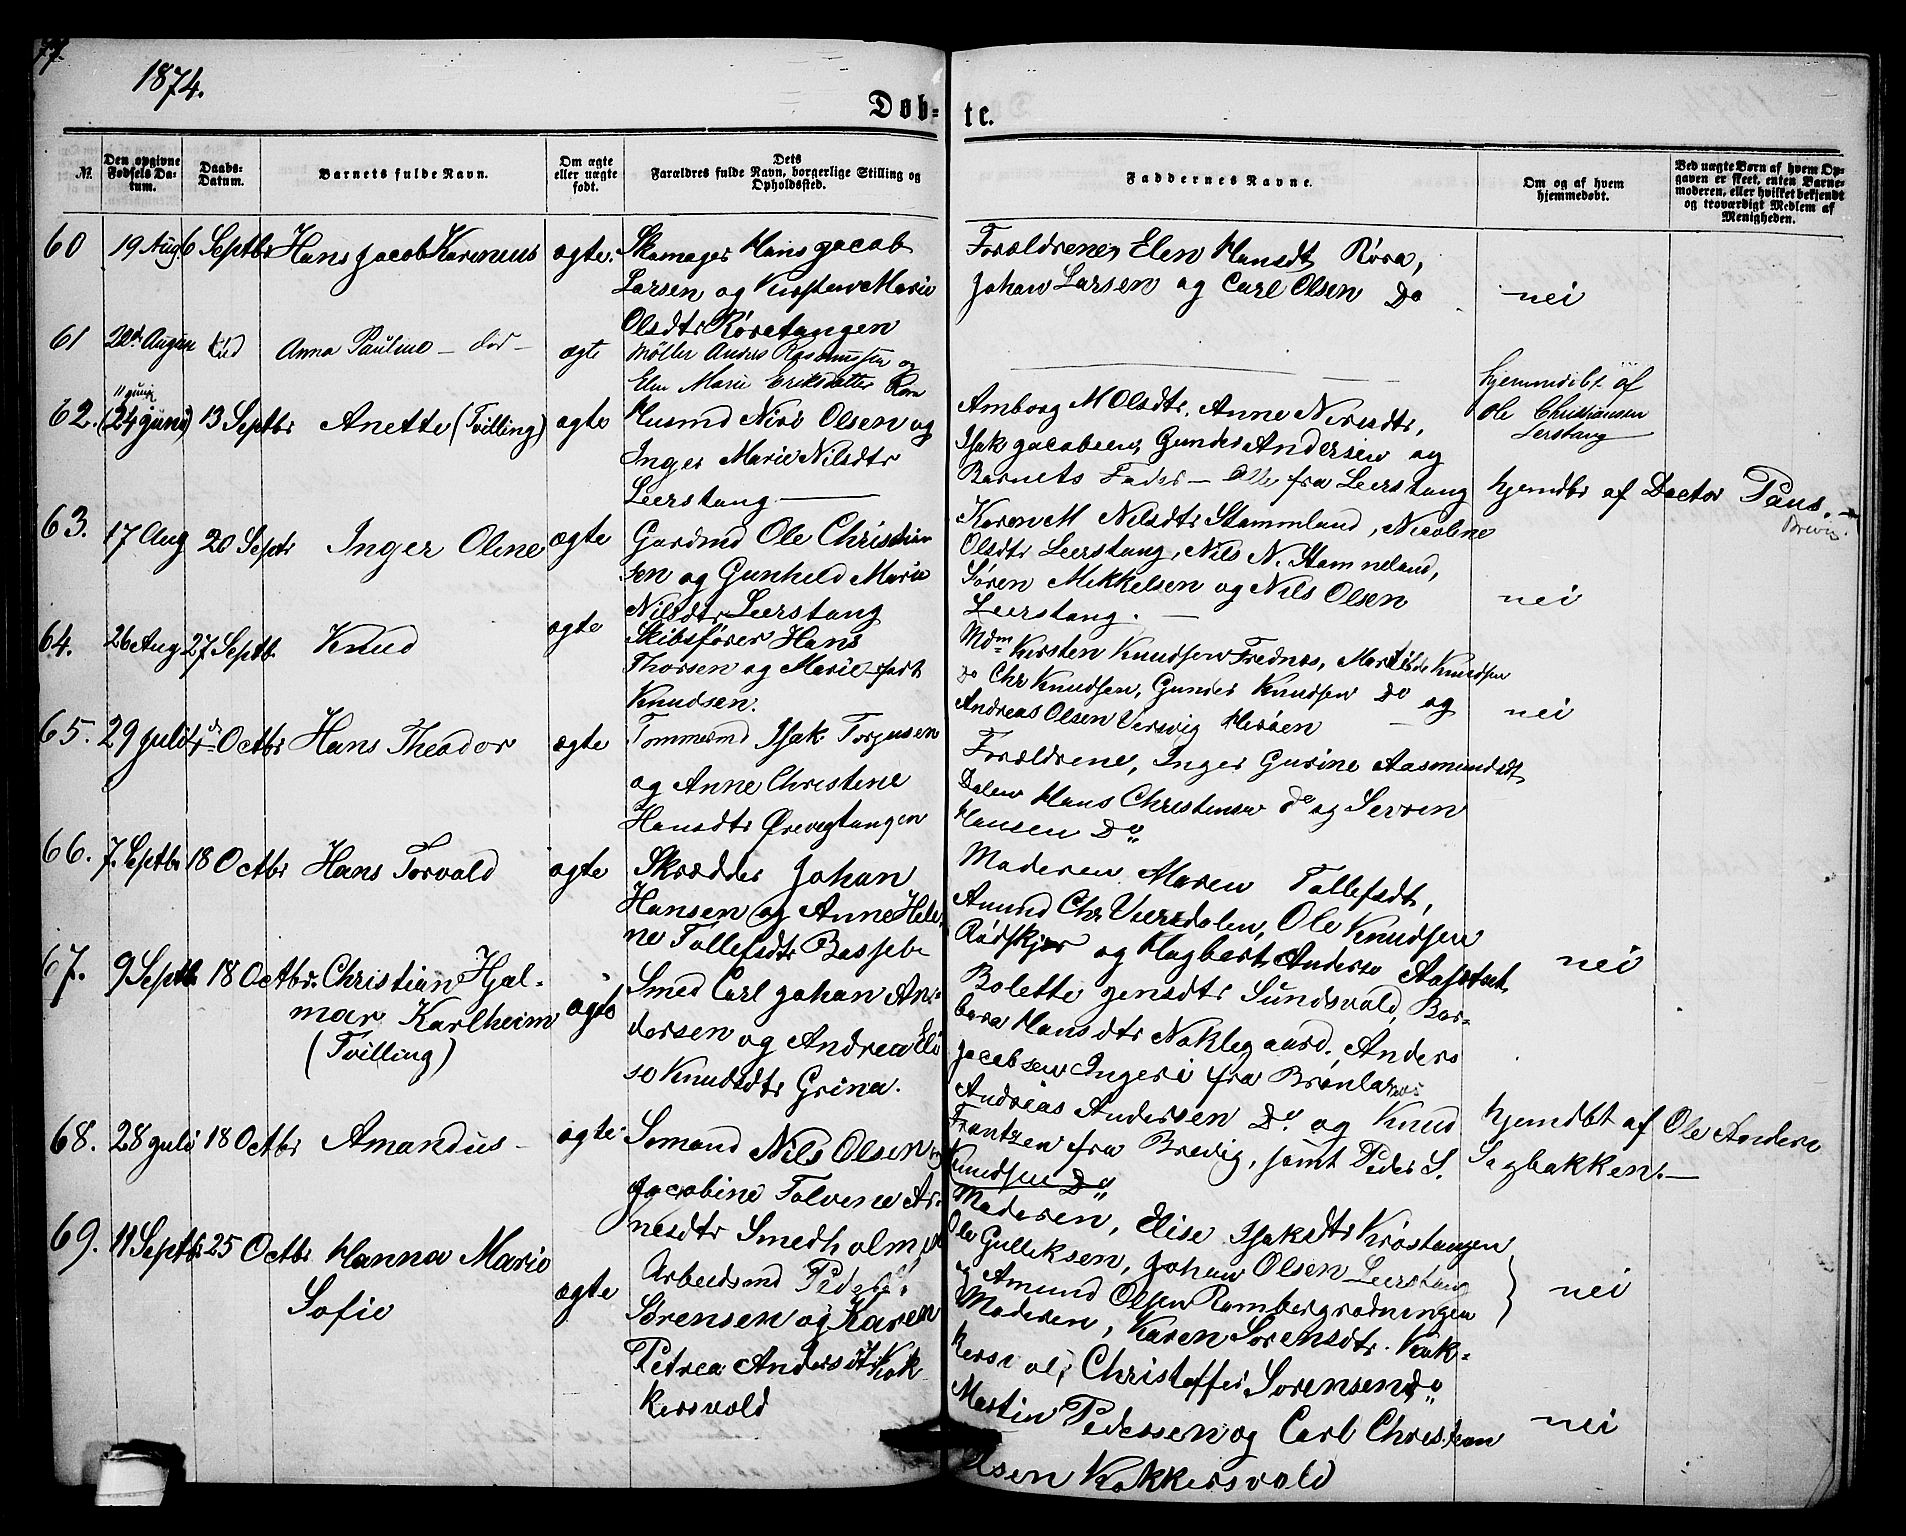 77.
1874.
Døb- te.
№.
Den opgivne Fødsels Da- tum.
Daabs- Datum.
Barnets fulde Navn.
Om ægte eller uægte født.
Dets Forældres fulde Navn, borgerlige Stilling og Opholdssted.
Faddernes Navne.
Om og af hvem hjemmedøbt.
Ved uægte Børn af hvem Op- gaven er skeet, enten Barne- moderen, eller hvilket bekjendt og troværdigt Medlem af Menigheden.
60 19 Aug 6 Septbr Hans Jacob Karenius ægte.
Skomager Hans Jacob
Larsen og Kirsten Marie
Olsdtr Røratangen
Forældrene, Elen Hansdt Røra,
Johan Larsen og Carl Olsen Do
nei
61 Anna Paulino — død — ægte
Møller Anders Rasmussen og
Elen Marie Eriksdatter Røra
hjemmedøbt af
Ole Christjansen
Lerstang
62. 11 Juni (24 Juni) 13 Septbr Anette (Tvilling) ægte
Husmd Nils Olsen og
Inger Marie Nilsdtr
Leerstang —
Amborg M Olsdtr, Anne Nirsdtr,
Isak Jacobsen, Gunder Andersen og
Barnets Fader — Alle fra Leerstang
hjemdbt af Doctor Paus. —
Brevig.
63. 17 Aug 20 Septbr Inger Oline ægte
Gaardmd Ole Christian
sen og Gunhild Marie
Nilsdtr Leerstang
Karen M Nilsdtr Stammland, Nicoline
Olsdtr Leerstang, Nils N. Stamneland,
Søren Mikkelsen og Nils Olsen
Leerstang. —
nei
64. 26 Aug 27 Septb. Knud ægte
Skibsfører Hans
Thorsen og Marie født
Knudsen.
Mdm Kirsten Knudsen Frednes, Knudsen
Do Chr Knudsen, Gunder Knudsen Do og
Andreas Olsen Versvig Herøen
nei
65. 29 Juli 4de Octbr Hans Theodor ægte
Tømmermd Isak Torgusen
og Anne Christine
Hansdtr Ørevegtangen
Forældrene, Inger Gurine Aasmundsdt
Dalen Hans Christensen do og Serren
Hansen Do
66. 7. Septbr 18 Octbr Hans Torvald ægte
Skrædder Johan
Hansen og Anne Hele-
ne Tollefsdtr Bassebo
Moderen Maren Tollefsdt,
Amund Chr Vierdalen, Ole Knudsen
Rødskjær og Hagbart Anderso Aafostset.
nei
67. 9 Septb. 18 Octbr. Christian Hjal-
mar Karlheim
(Tvilling)
ægte
Smed Carl Johan An-
dersen og Andrea Eli
se Knudsdtr Grina.
Bolette Jensdtr Sundsvald, Bar-
bara Hansdtr Noklegaard. Anders
Jacobsen Ingeri fra Brønla
Andreas Andersen Do. og Knud
Frantzen fra Brevig, samt Peder S.
Knudsen Do
hjemdbt af Ole Anders
Sagbakken. —
68. 28 Juli 18 Octbr Amandus — ægte
Sømand Nils Olsen og
Jacobine Tolvine Ar-
nesdtr Smedholmen
Moderen, Elise Isaksdtr Krøstangen
Ole Gulliksen, Johan Olsen Leerstang
og Amund Olsen Rambergrødningen
nei
69. 11 Septb 25 Octbr Hanna Marie
Sofie
ægte
Arbeidsmd Peder
Sørensen og Karen
Petrea Andersdtr Kok-
kersvold
Moderen, Karen Sørensdtr. Kok-
kersvol, Christoffer Sørensen do
Martin Pedersen og Carl Christian
Olsen Kokkersvold
nei